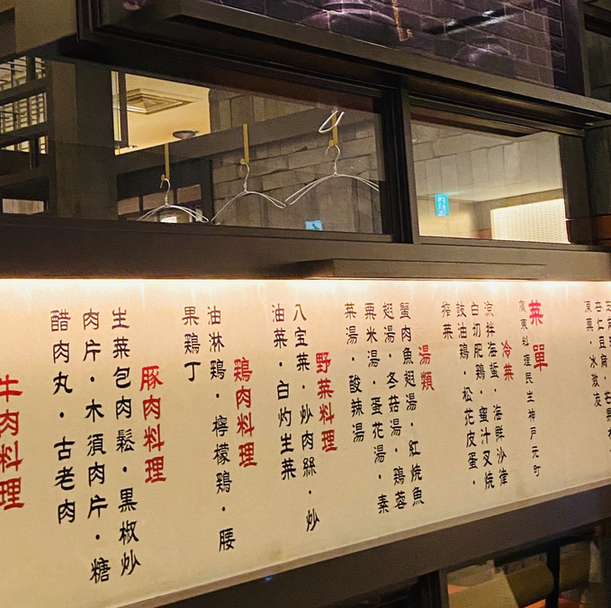 杏仁豆腐
凍菓・氷激凌
菜單
廣東料理民生神戸元町
冷菜
涼拌海蜇・海鮮沙律
白切肥鶏・蜜汁叉焼
豉油鶏・松花皮蛋・
搾菜
湯類
蟹肉魚翅湯・紅焼魚
翅湯・冬菇湯・鶏蓉
粟米湯・蛋花湯・素
菜湯・酸辣湯
野菜料理
八宝菜・炒肉絲・炒
油菜・白灼生菜
鶏肉料理
油淋鶏・檸檬鶏・腰
果鶏丁
豚肉料理
生菜包肉鬆・黒椒炒
肉片・木須肉片・糖
醋肉丸・古老肉
牛肉料理